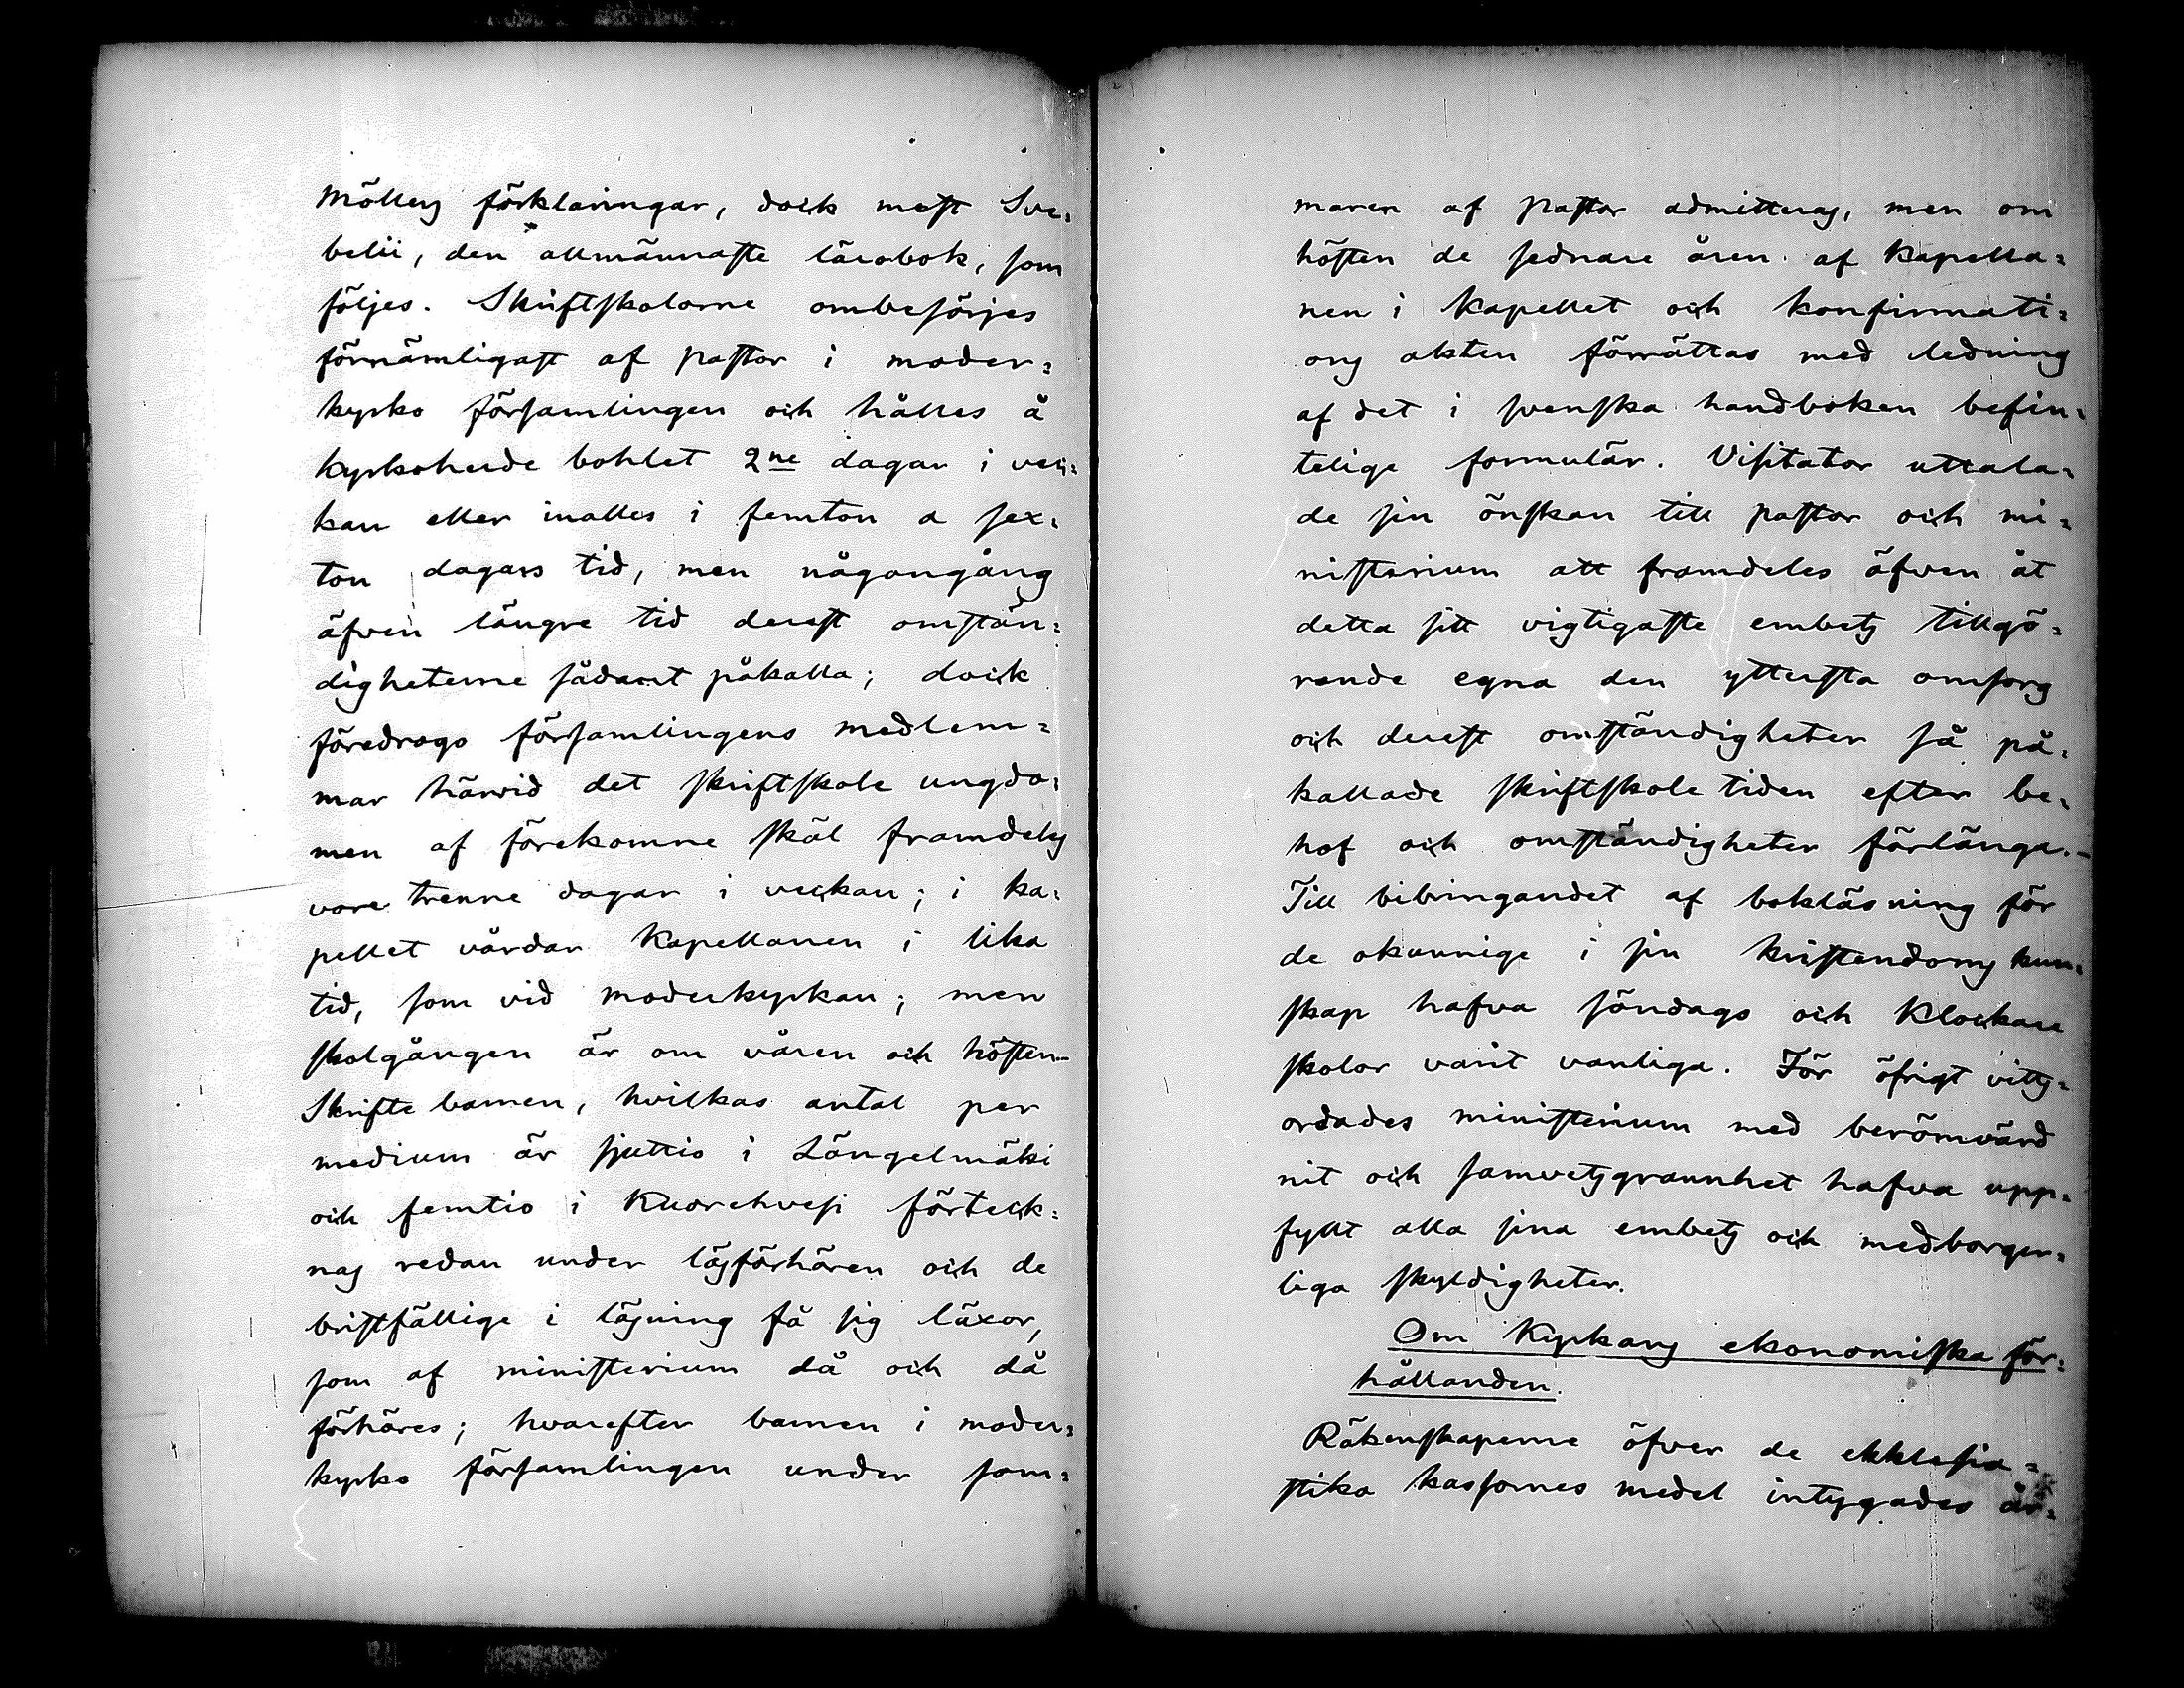 Möllers förklaringar, dock mest Sve=
belii, den allmännaste lärobok, som
följes. Skriftskolorne ombesörjes
förnämligast af pastor i moder=
kyrko församlingen och hålles å
kyrkoherde bohlet 2ne dagar i vec=
kan eller inalles i femton a sex=
ton dagars tid, men någongång
äfven längre tid derest omstän=
digheterne sådant påkalla; dock
föredrogo församlingens medlem=
mar härvid det skriftskole ungdo=
men af förekomne skäl framdeles
vore trenne dagar i veckan; i ka=
pellet vårdar Kapellanen i lika
tid, som vid moderkyrkan; men
skolgången är om våren och hösten.-
Skrifte barnen, hvilkas antal per
medium är sjuttio i Längelmäki
och femtio i Kuorehvesi förteck=
nas redan under läsförhören och de
bristfällige i läsning få sig läxor,
som af ministerium då och då
förhöres; hvarefter barnen i moder=
kyrko församlingen under som=
maren af pastor admitteras, men om
hösten de sednare åren af Kapella=
nen i Kapellet och konfirmati=
ons akten förrättas med ledning
af det i svenska handboken befin=
telige formulär. Visitator uttala=
de sin önskan till pastor och mi=
nisterium att framdeles äfven åt
detta sitt vigtigaste embets tillgö=
rande egna den yttersta omsorg
och derest omständigheter så på=
kallade skriftskole tiden efter be=
hof och omständigheter förlänga.-
Till bibringandet af bokläsning för
de okunnige i sin kristendoms kun=
skap hafva söndags och Klockare
skolor varit vanliga. För öfrigt vitts=
ordades ministerium med berömvärd
nit och samvetsgrannhet hafva upp=
fyllt alla sina embets och medborger=
liga skyldigheter.
Om Kyrkans ekonomiska för=
hållanden.
Räkenskaperne öfver de ekklesia=
stika kassornes medel intygades år=